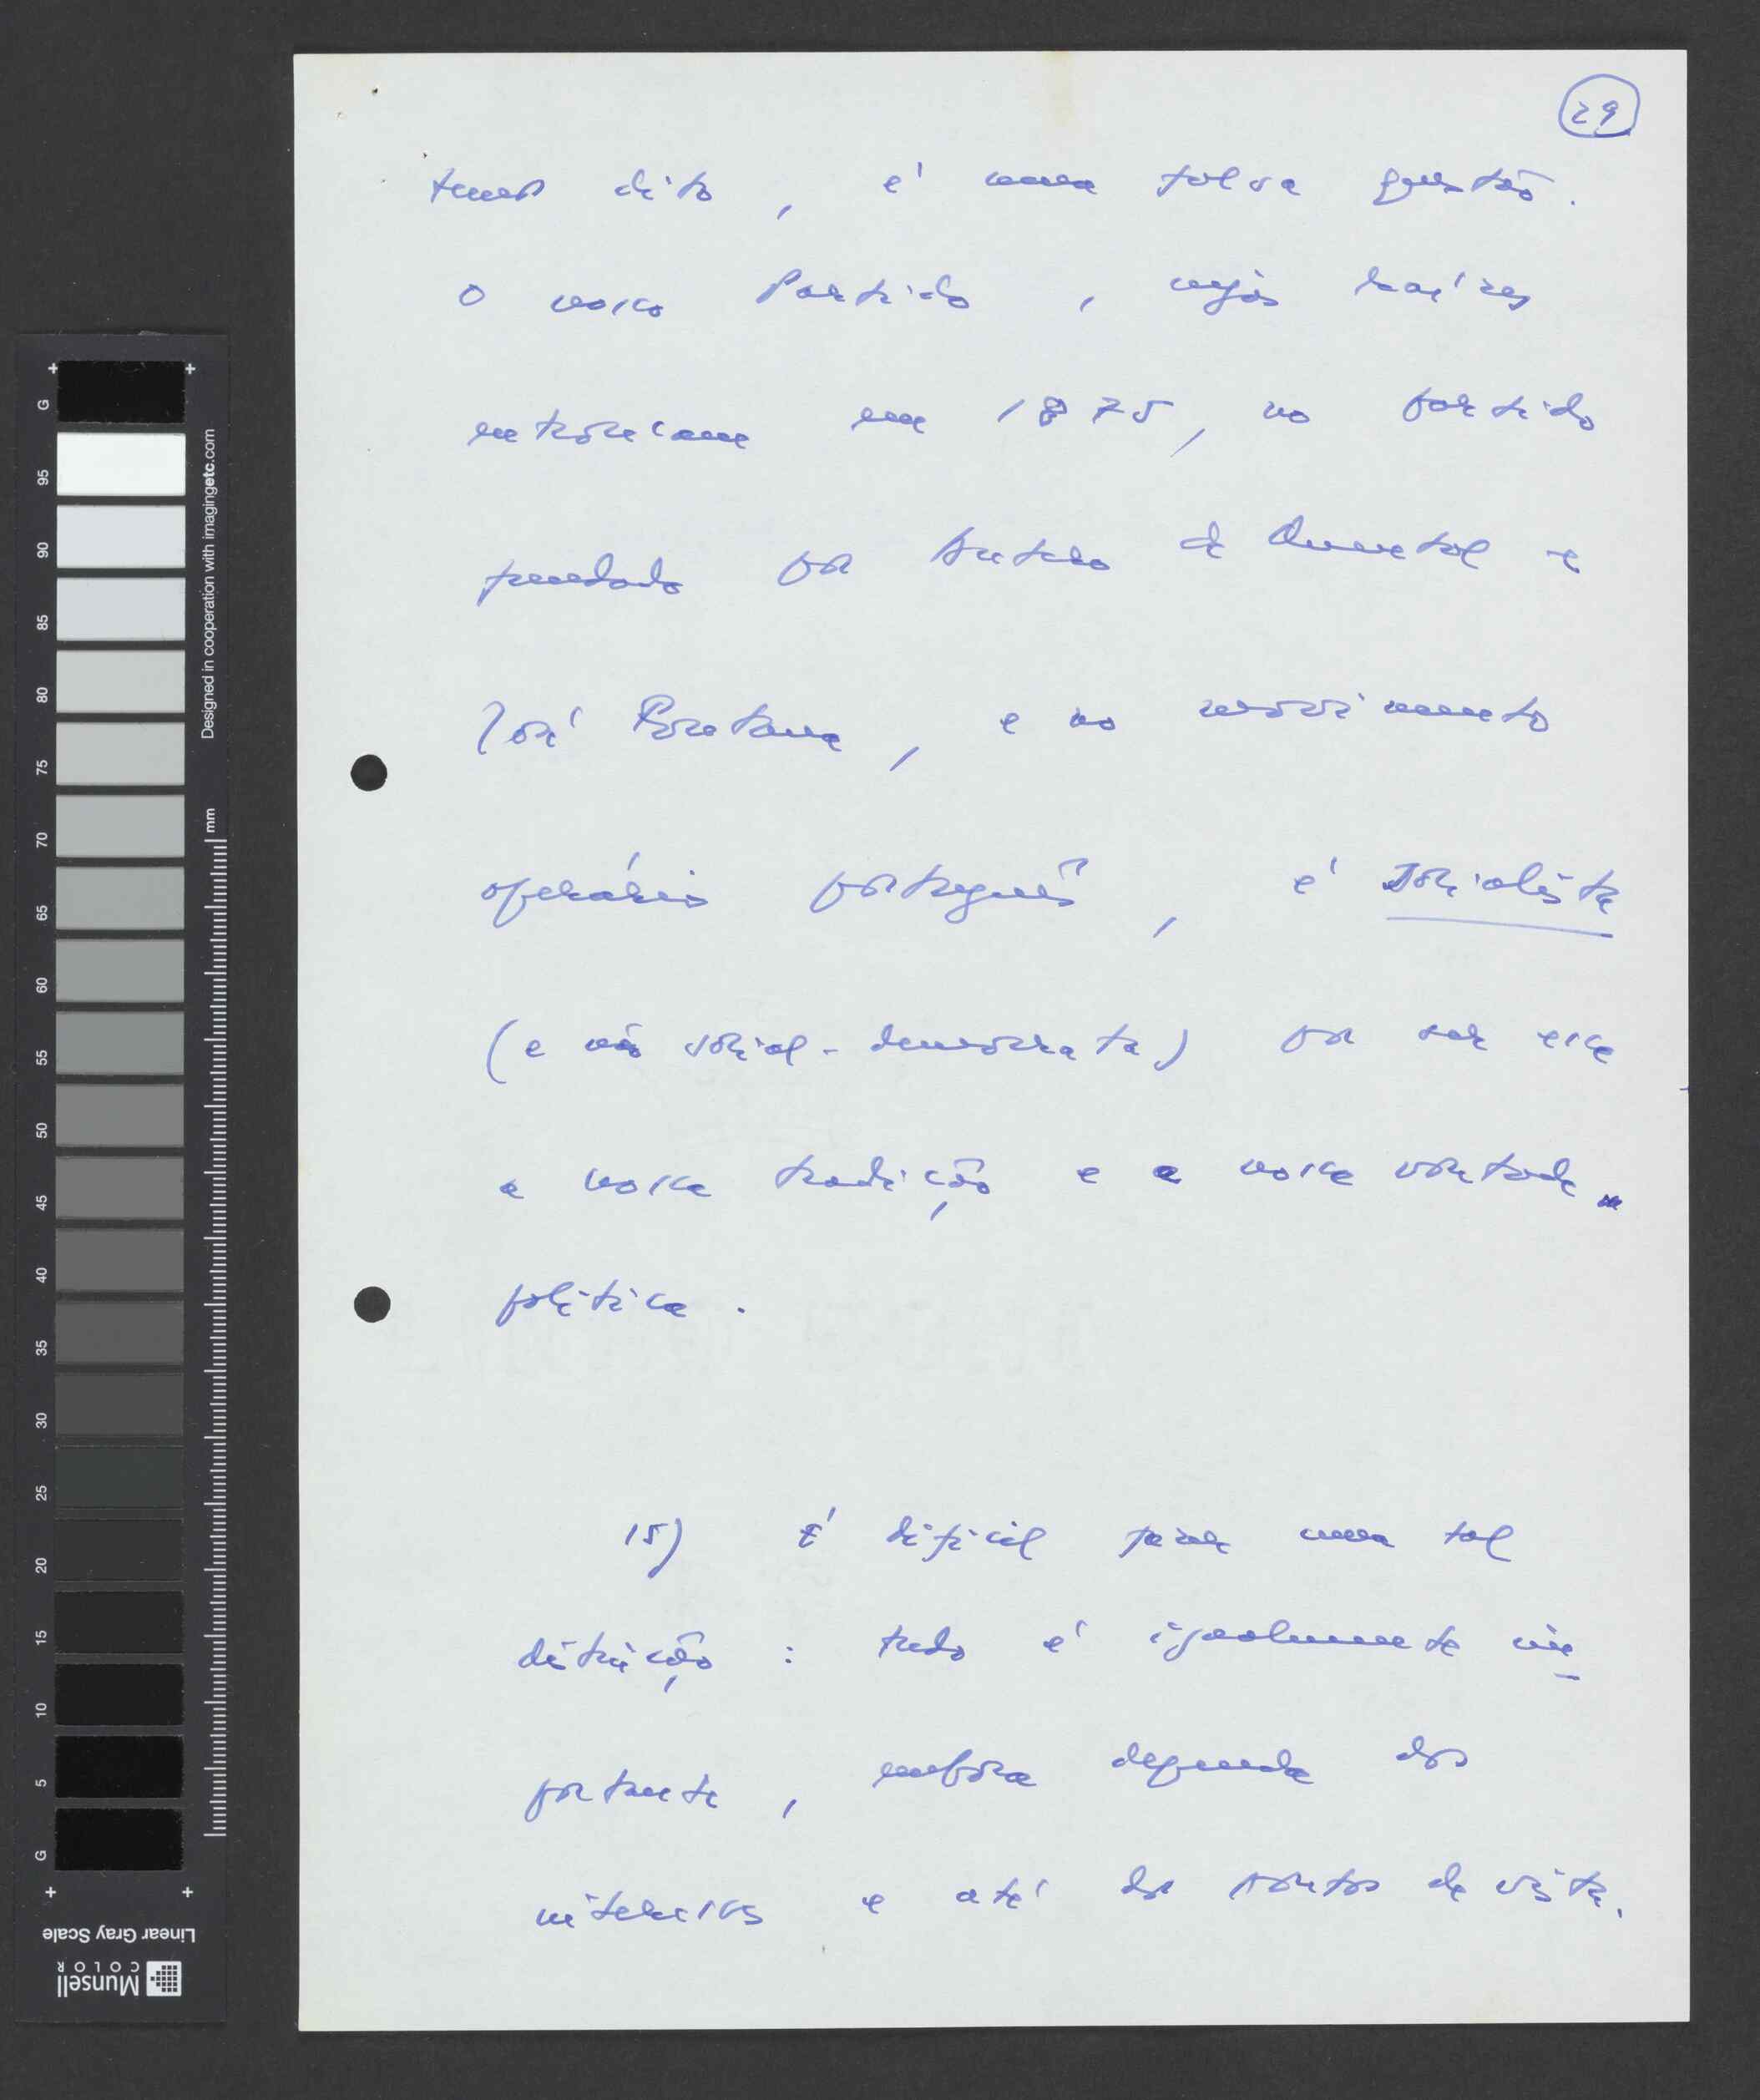 29
temos dito, é uma falsa questão.
O nosso Partido, cujas raízes
entroncam em 1875, no partido
fundado por Antero de Quental e
José Fontana, e no movimento
operário português, é Socialista
(e não social-democrata) por ser essa
a nossa tradição e a nossa vontade
política.
15) É difícil fazer uma tal
distinção: tudo é igualmente im-
portante, embora dependa dos
interesses e até dos pontos de vista.
G
95
90
85
80
75
70
65
60
55
50
45
40
35
30
25
20
15
10
5
G
Designed in cooperation with imagingetc.com
mm
Linear Gray Scale
Munsell
COLOR